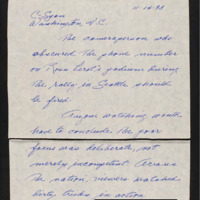 11-14-93
C-Span
Washington D.C.
The cameraperson who
obscured the phone number
on Ross Perot's podium during
the rally in Seattle should
be fired.
Anyone watching would
have to conclude the poor
focus was deliberate, not
merely incompetent. Across
the nation, viewers watched
dirty tricks in action